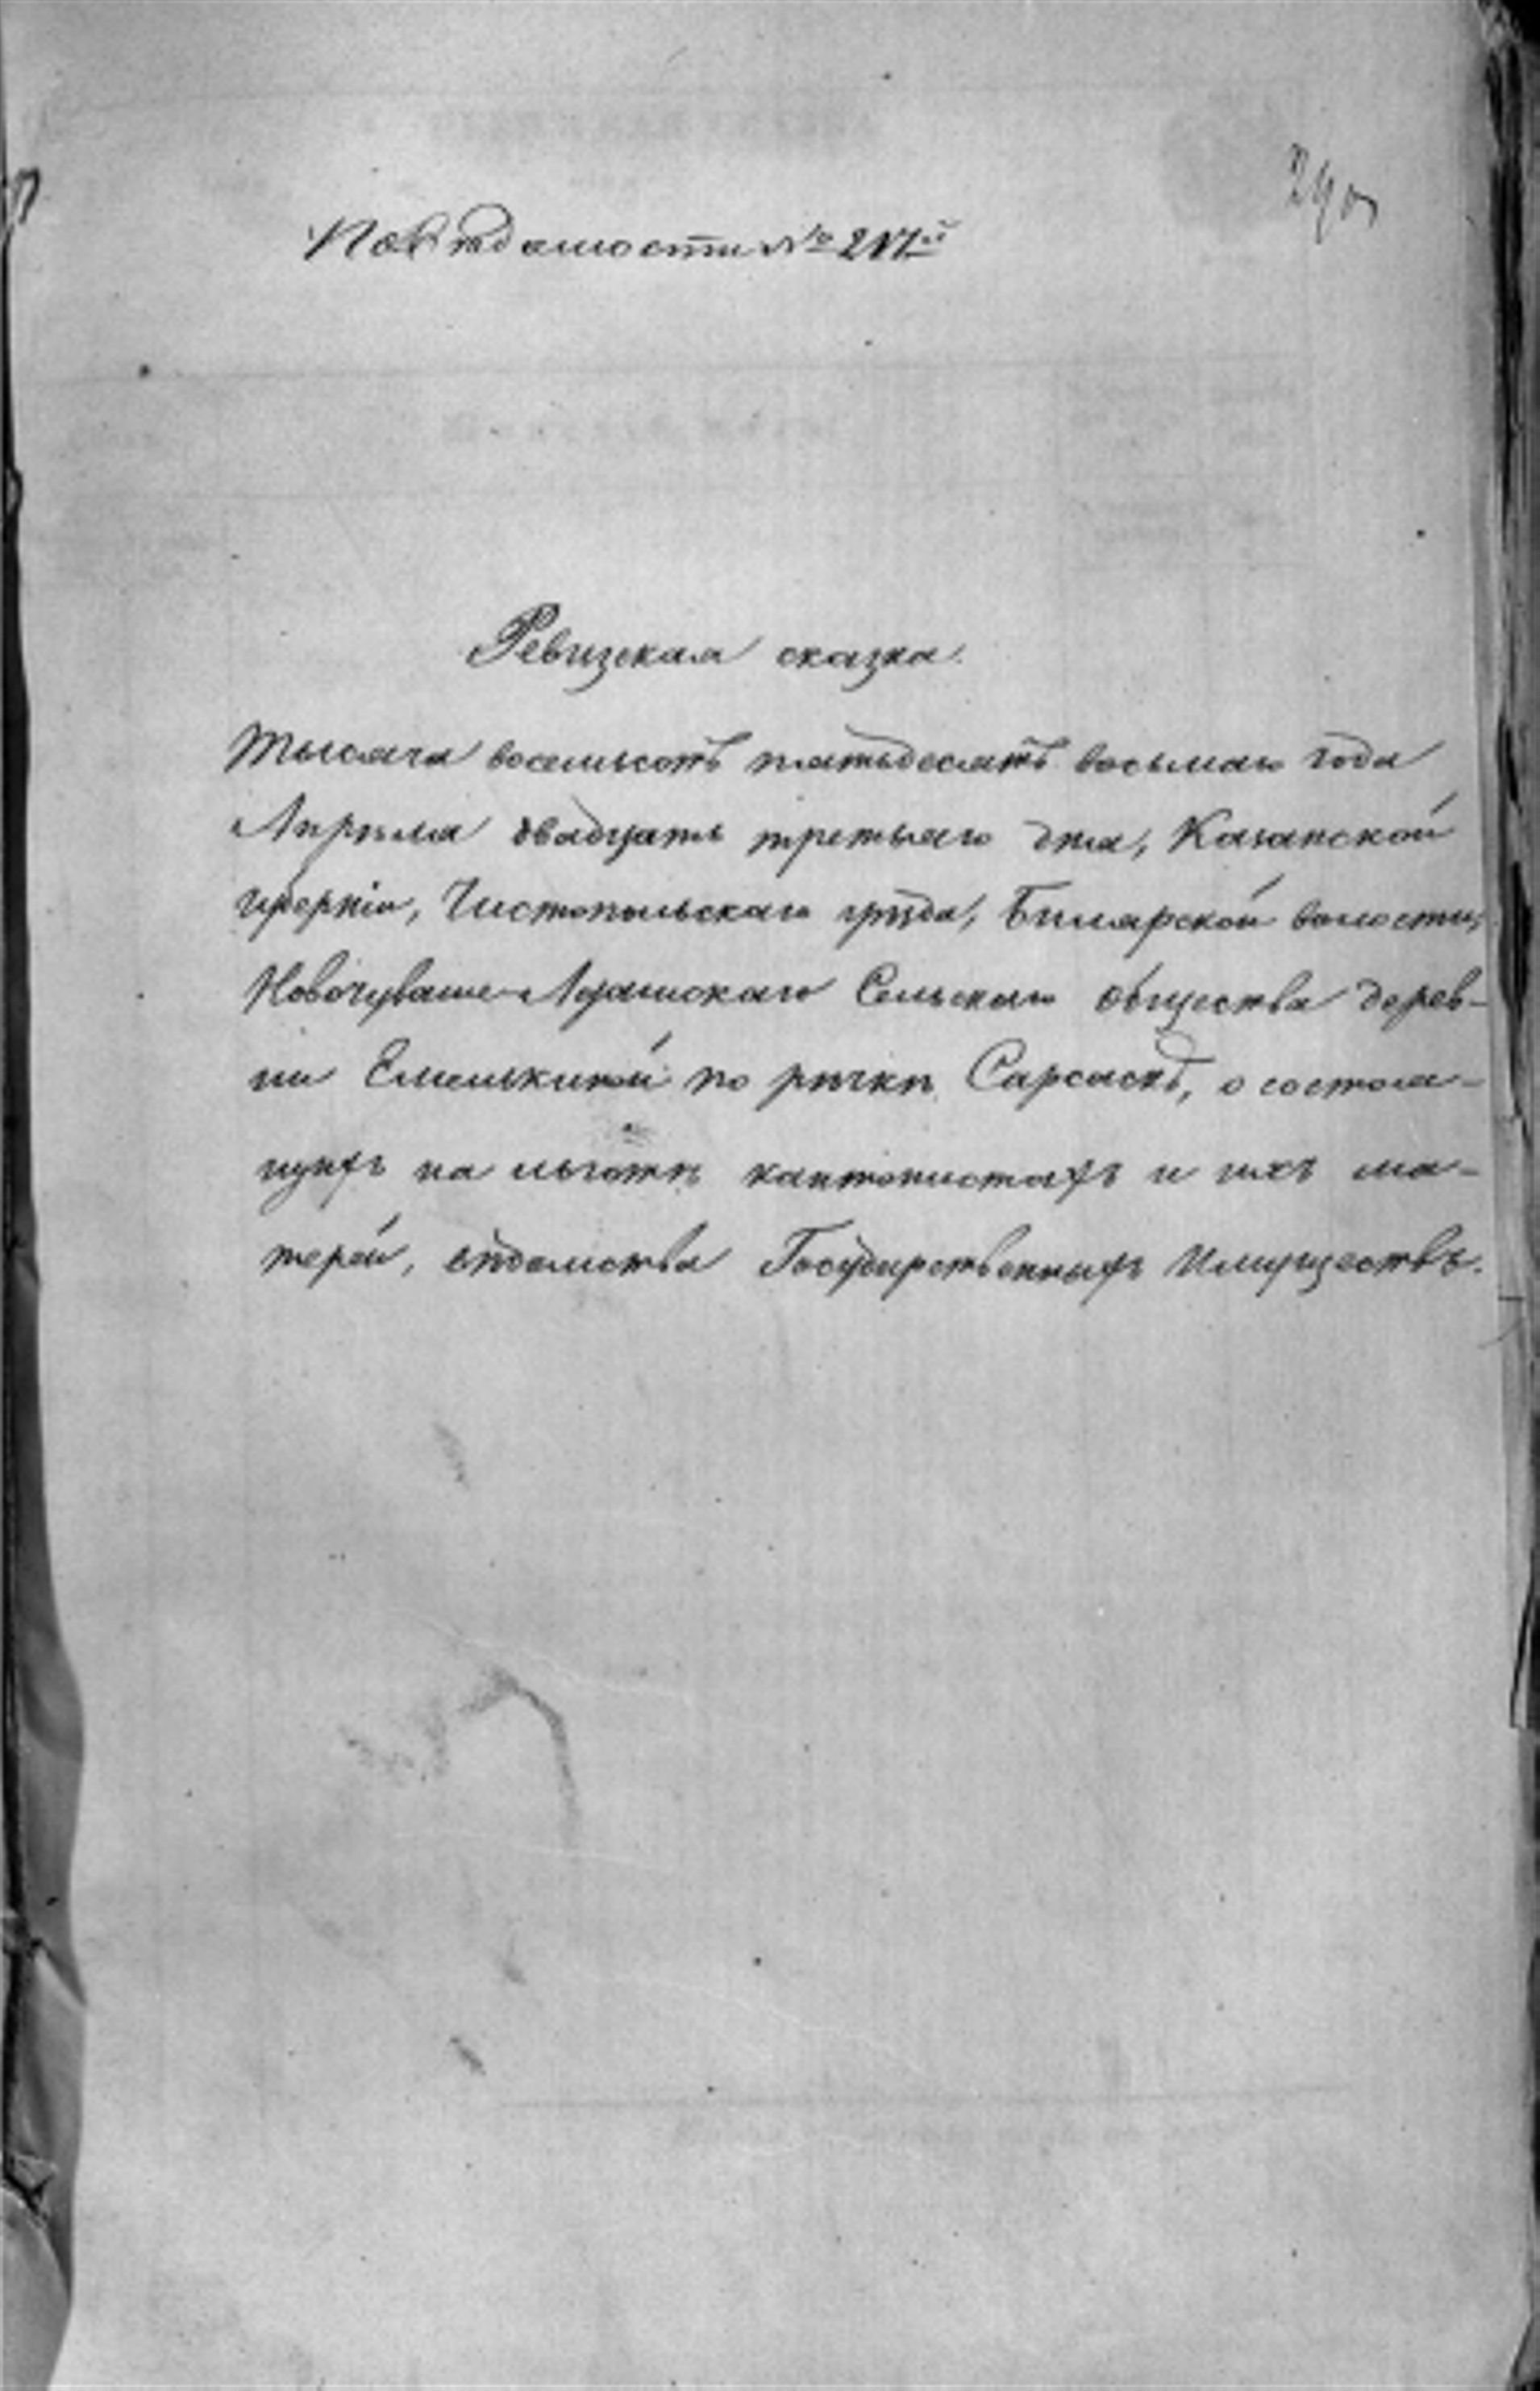 290
По вѣдомости № 217й
Ревизская сказка.
Тысяча восемьсотъ пятьдесятъ восьмаго года
Апрѣля двадцать третьяго дня, Казанской
губерніи, Чистопольскаго уѣзда, Билярской волости,
Новочуваше-Адамскаго Сельскаго общества дерев-
ни Емелькиной по рѣчкѣ Сарсаскѣ, о состоя-
щихъ на льготѣ кантонистахъ и ихъ ма-
терей, вѣдомства Государственныхъ Имуществъ.